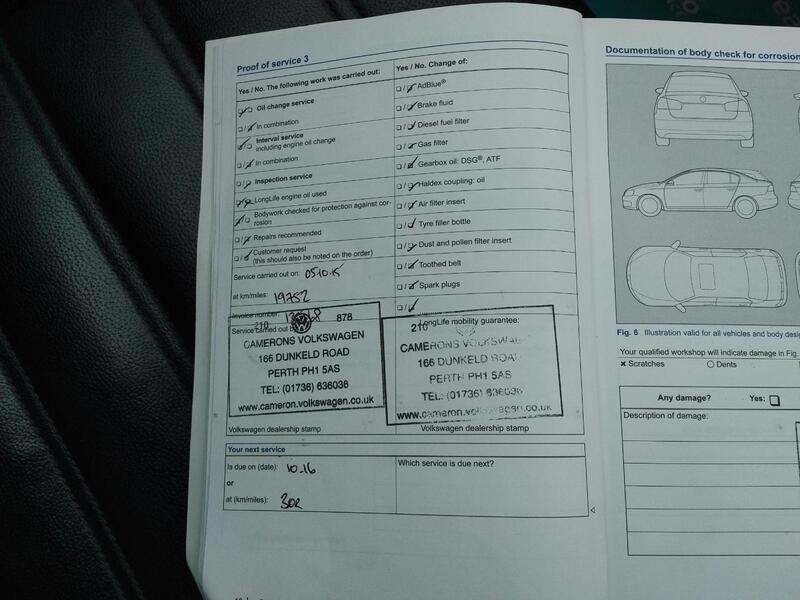 Proof of service 3
Yes / No. The following work was carried out:
Oil change service
In combination
Interval service
including engine oil change
In combination
Inspection service
LongLife engine oil used
Bodywork checked for protection against cor-
rosion
Repairs recommended
Customer request
(this should also be noted on the order)
Service carried out on: 05.10.15
at km/miles: 19752
Invoice number:
Service carried out by
210 878
CAMERONS VOLKSWAGEN
166 DUNKELD ROAD
PERTH PH1 5AS
TEL: (01736) 636036
www.cameron.volkswagen.co.uk
Volkswagen dealership stamp
Yes / No. Change of:
AdBlue®
Brake fluid
Diesel fuel filter
Gas filter
Gearbox oil: DSG®, ATF
Haldex coupling: oil
Air filter insert
Tyre filler bottle
Dust and pollen filter insert
Toothed belt
Spark plugs
LongLife mobility guarantee:
210
CAMERONS VOLKSWAG
166 DUNKELD ROA
PERTH PH1 5AS
TEL: (01736) 636036
www.cameron.volkswagen.co.uk
Volkswagen dealership stamp
Your next service
Is due on (date): 10.16
or
at (km/miles): 30k
Which service is due next?
Documentation of body check for corrosion
Fig. 6 Illustration valid for all vehicles and body desi
Your qualified workshop will indicate damage in Fig.
× Scratches ○ Dents
Any damage? Yes:
Description of damage: